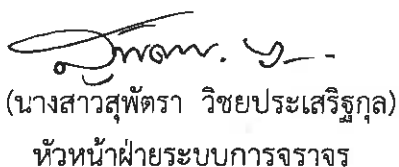 (นางสาวสุพัตรา วิชยประเสริฐกุล)
หัวหน้าฝ่ายระบบการจราจร